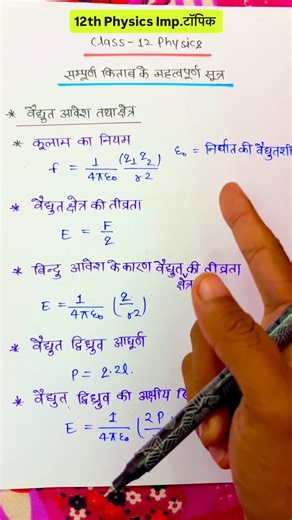 12th Physics Imp.टॉपिक
Class-12 Physics
सम्पूर्ण किताब के महत्वपूर्ण सूत्र
* वैद्युत आवेश तथा क्षेत्र
* कूलाम का नियम
f = 1/4πε0 (q1 q2)/r2 ε0 = निर्वात की वैद्युतशी
* वैद्युत क्षेत्र की तीव्रता
E = F/q
* बिन्दु आवेश के कारण वैद्युत क्षेत्र की तीव्रता
E = 1/4πε0 (q/r2)
* वैद्युत द्विध्रुव आघूर्ण
P = q.2l.
* वैद्युत द्विध्रुव की अक्षीय
E = 1/4πε0 (2P